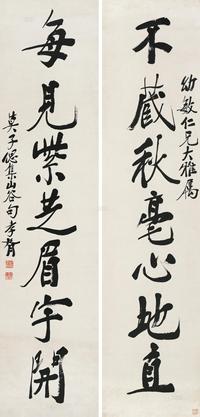 幼敏仁兄大雅属
不藏秋毫心地直
每見紫芝眉宇開
莫子偲集山谷句孝胥